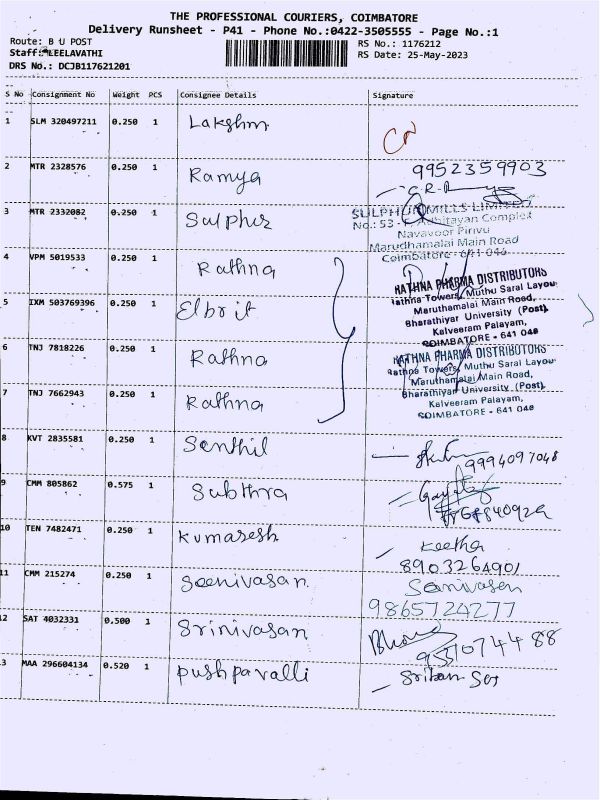 THE PROFESSIONAL COURIERS, COIMBATORE
Delivery Runsheet - P41 - Phone No.:0422-3505555 - Page No.:1
Route: B U POST
RS No.: 1176212
Staff: LEELAVATHI
RS Date: 25-May-2023
DRS No.: DCJB117621201
S No Consignment No Weight PCS Consignee Details Signature
1 SLM 320497211 0.250 1 Lakshmi
2 MTR 2328576 0.250 1 Ramya 9952359903
3 MTR 2332082 0.250 1 Sulphur
SULPHUR MILLS LIMITED
No.: 53 - Complex
Navavoor Pirivu
Marudhamalai Main Road
Coimbatore - 641 046
4 VPM 5019533 0.250 1 Rathna
RATHNA PHARMA DISTRIBUTORS
Rathna Towers, Muthu Saral Layou-
Maruthamalai Main Road,
5 IXM 503769396 0.250 1 Elbrit
Bharathiyar University (Post),
Kalveeram Palayam,
COIMBATORE - 641 046
6 TNJ 7818226 0.250 1 Rathna
RATHNA PHARMA DISTRIBUTORS
Rathna Towers, Muthu Saral Layou-
Maruthamalai Main Road,
7 TNJ 7662943 0.250 1 Rathna
Bharathiyar University (Post),
Kalveeram Palayam,
COIMBATORE - 641 046
8 KVT 2835581 0.250 1 Senthil
9994097048
9 CMM 805862 0.575 1 Subthra
10 TEN 7482471 0.250 1 Kumaresh Keetha
8903264901
11 CMM 215274 0.250 1 Seenivasan Senivasan
9865724277
12 SAT 4032331 0.500 1 Srinivasan
13 MAA 296604134 0.520 1 pushpavalli